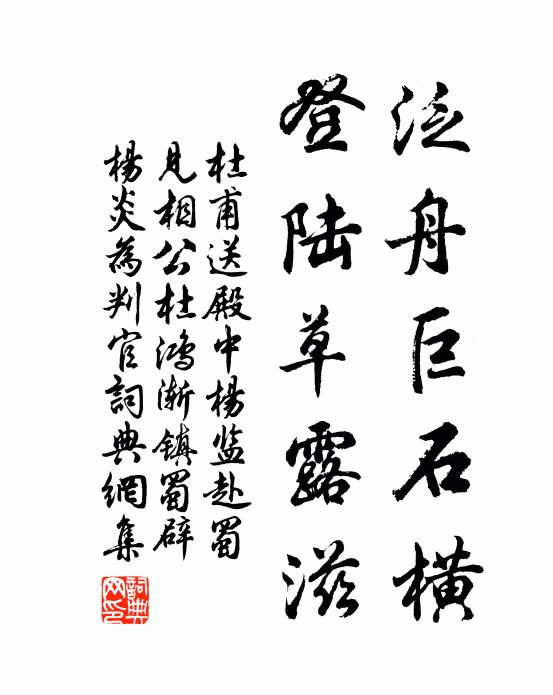 泛舟巨石横
登陆草露滋
杜甫送殿中楊监赴蜀
見相公杜鸿渐镇蜀辟
楊炎為判官詞典網集